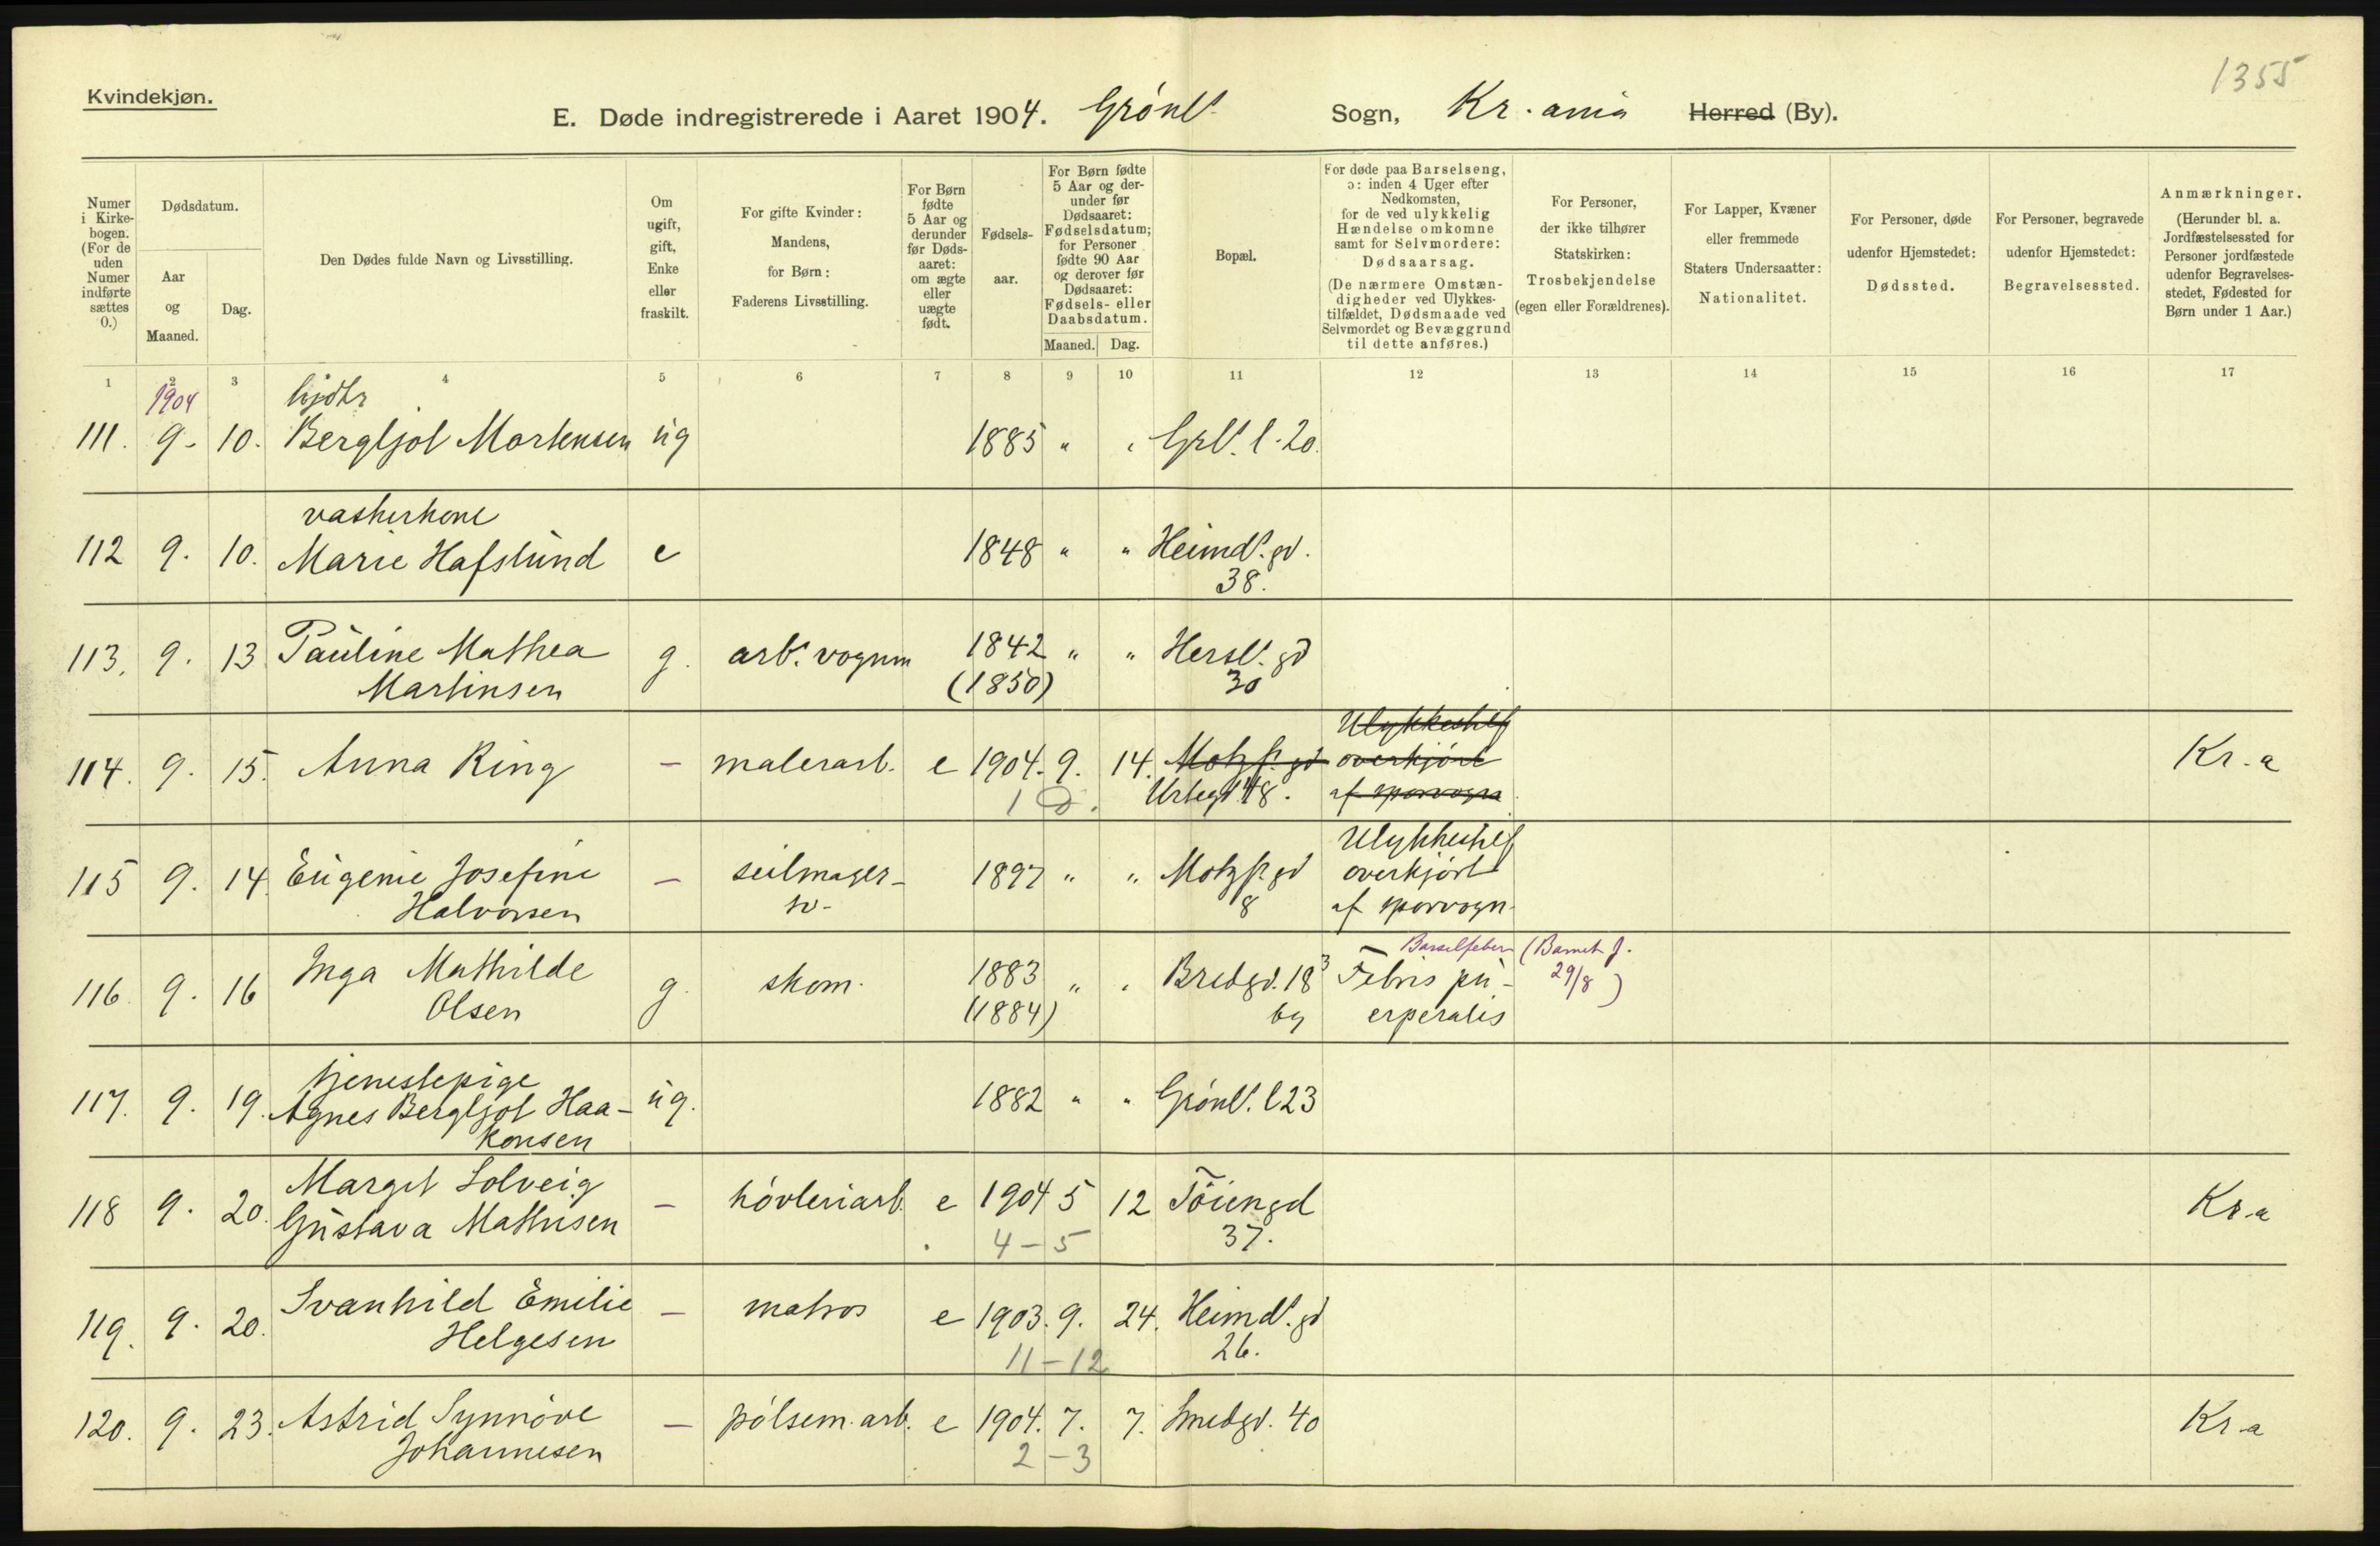 1355
Kvindekjøn.
E. Døde indregistrerede i Aaret 1904. Grønl. Sogn, Kr.ania Herred (By).
Numer i Kirkebogen. (For de uden Numer indførte sættes 0.)
Dødsdatum.
Aar og Maaned.
Dag.
Den Dødes fulde Navn og Livsstilling.
Om ugift, gift, Enke eller fraskilt.
For gifte Kvinder: Mandens, for Børn: Faderens Livsstilling.
For Børn fødte 5 Aar og derunder før Dødsaaret: om ægte eller uægte født.
Fødselsaar.
For Børn fødte 5 Aar og derunder før Dødsaaret: Fødselsdatum; for Personer fødte 90 Aar og derover før Dødsaaret: Fødsels- eller Daabsdatum.
Maaned. Dag.
Bopæl.
For døde paa Barselseng, ɔ: inden 4 Uger efter Nedkomsten, for de ved ulykkelig Hændelse omkomne samt for Selvmordere: Dødsaarsag. (De nærmere Omstændigheder ved Ulykkestilfældet, Dødsmaade ved Selvmordet og Bevæggrund til dette anføres.)
For Personer, der ikke tilhører Statskirken: Trosbekjendelse (egen eller Forældrenes).
For Lapper, Kvæner eller fremmede Staters Undersaatter: Nationalitet.
For Personer, døde udenfor Hjemstedet: Dødssted.
For Personer, begravede udenfor Hjemstedet: Begravelsessted.
Anmærkninger. (Herunder bl. a. Jordfæstelsessted for Personer jordfæstede udenfor Begravelsesstedet, Fødested for Børn under 1 Aar.)
1 2 3 4 5 6 7 8 9 10 11 12 13 14 15 16 17
1904
111. 9. 10. Bergljot Mortensen ug 1885 " " Grl. l. 20.
vaskerkone
112 9. 10. Marie Hafslund e 1848 " " Heimd. gd.
38.
113. 9. 13 Pauline Mathea g. arb. vognm 1842 " " Hersl. gd
Martinsen (1850) 30
Ulykkestilf
114. 9. 15. Anna Ring — malerarb. e 1904. 9. 14. Motzf. gd overkjørt Kr.a
1 D. Urtegd 48. af sporvogn
Ulykkestilf
115 9. 14 Eugenie Josefine — seilmager- 1897 " " Motzf. gd overkjørt
Halvorsen sv- 8 af sporvogn
Barselfeber (Barnet f.
116. 9. 16 Inga Mathilde g. skom. 1883 " " Bredgd. 18³ Febris pu- 29/8)
Olsen (1884) bg erperalis
tjenestepige
117. 9. 19. Agnes Bergljot Haa- ug. 1882 " " Grønl. l 23
konsen
Margit Solveig
118 9. 20. Gustava Mathisen — høvleriarb. e 1904 5 12 Tøiengd Kr.a
4-5 37.
119. 9. 20. Svanhild Emilie — matros e 1903. 9. 24. Heimd. gd
Helgesen 11-12 26.
120. 9. 23. Astrid Synnøve — pølsem. arb. e 1904. 7. 7. Smedgd. 40 Kr.a
Johannesen 2-3